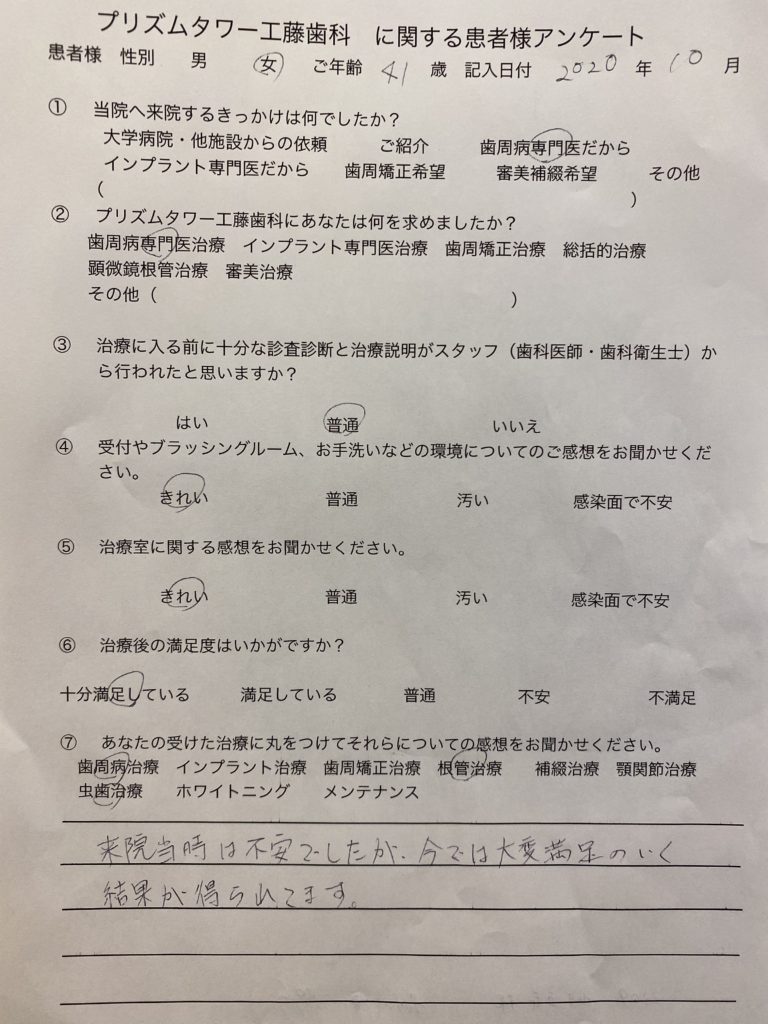 プリズムタワー工藤歯科　に関する患者様アンケート
患者様　性別　男　女　ご年齢 41 歳　記入日付 2020 年 10 月
①　当院へ来院するきっかけは何でしたか？
大学病院・他施設からの依頼　ご紹介　歯周病専門医だから
インプラント専門医だから　歯周矯正希望　審美補綴希望　その他
（　）
②　プリズムタワー工藤歯科にあなたは何を求めましたか？
歯周病専門医治療　インプラント専門医治療　歯周矯正治療　総括的治療
顕微鏡根管治療　審美治療
その他（　）
③　治療に入る前に十分な診査診断と治療説明がスタッフ（歯科医師・歯科衛生士）か
ら行われたと思いますか？
はい　普通　いいえ
④　受付やブラッシングルーム、お手洗いなどの環境についてのご感想をお聞かせくだ
さい。
きれい　普通　汚い　感染面で不安
⑤　治療室に関する感想をお聞かせください。
きれい　普通　汚い　感染面で不安
⑥　治療後の満足度はいかがですか？
十分満足している　満足している　普通　不安　不満足
⑦　あなたの受けた治療に丸をつけてそれらについての感想をお聞かせください。
歯周病治療　インプラント治療　歯周矯正治療　根管治療　補綴治療　顎関節治療
虫歯治療　ホワイトニング　メンテナンス
来院当時は不安でしたが、今では大変満足のいく
結果が得られてます。